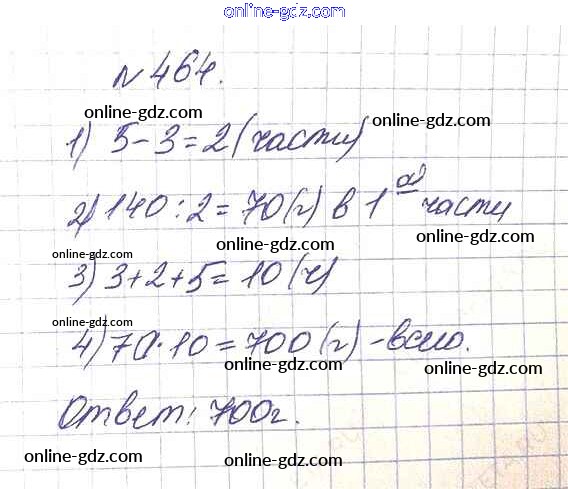 online-gdz.com
N 464.
online-gdz.com
online-gdz.com
1) 5 - 3 = 2 (части)
online-gdz.com
2) 140 : 2 = 70 (г) в 1ой части
online-gdz.com
online-gdz.com
online-gdz.com
3) 3 + 2 + 5 = 10 (ч)
online-gdz.com
4) 70 · 10 = 700 (г) - всего.
online-gdz.com
online-gdz.com
Ответ: 700г.
online-gdz.com
online-gdz.com
online-gdz.com